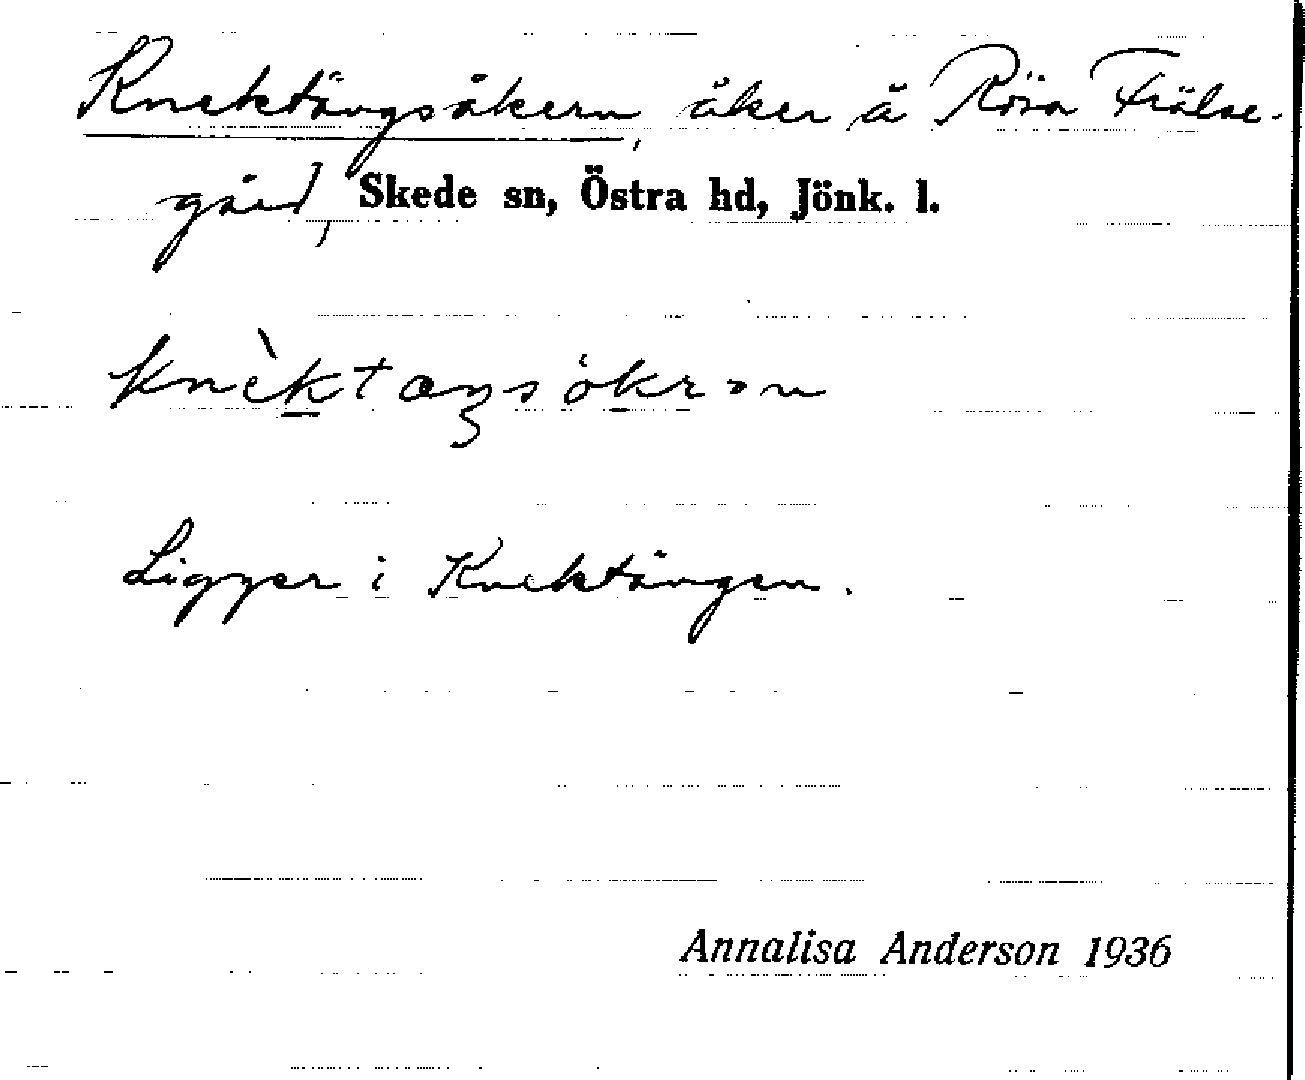 Knektängsåkern, åker å Rösa Frälse-
gård, Skede sn, Östra hd, Jönk. l.
knèktaŋsökrən
Ligger i Knektängen.
Annalisa Anderson 1936